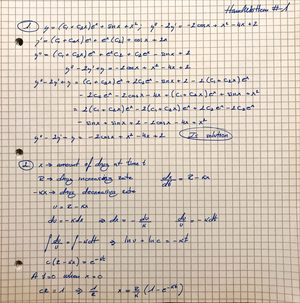 Handitation #1
① y = (C₁ + C₂x)eˣ + sinx + x² ; y'' - 2y' + y = -2cosx + x² - 4x + 2
y' = (C₁ + C₂x)eˣ + eˣ(C₂) + cosx + 2x
y'' = (C₁ + C₂x)eˣ + eˣC₂ + C₂eˣ - sinx + 2
y'' - 2y' + y = -2cosx + x² - 4x + 2
y'' - 2y' + y = (C₁ + C₂x)eˣ + 2C₂eˣ - sinx + 2 - 2(C₁ + C₂x)eˣ
- 2C₂eˣ - 2cosx - 4x + (C₁ + C₂x)eˣ + sinx + x²
= 2(C₁ + C₂x)eˣ - 2(C₁ + C₂x)eˣ + 2C₂eˣ - 2C₂eˣ
- sinx + sinx + 2 - 2cosx - 4x + x²
y'' - 2y' + y = -2cosx + x² - 4x + 2 Is solution
② x → amount of drug at time t
R → drug increasing rate dx/dt = R - kx
-kx → drug decreasing rate
u = R - kx
du = -kdx ⇒ dx = -du/k du/u = -kdt
∫ du/u = ∫ -kdt ⇒ ln u + ln c = -kt
c(R - kx) = e^-kt
At t=0 when x = 0
cR = 1 ⇒ 1/R x = R/k (1 - e^-kt)